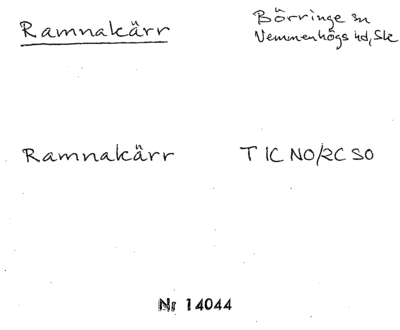 Ramnakärr
Börringe sn
Vemmenhögs hd, Sk
Ramnakärr
T 1C NO/2C SO
Nr 14044